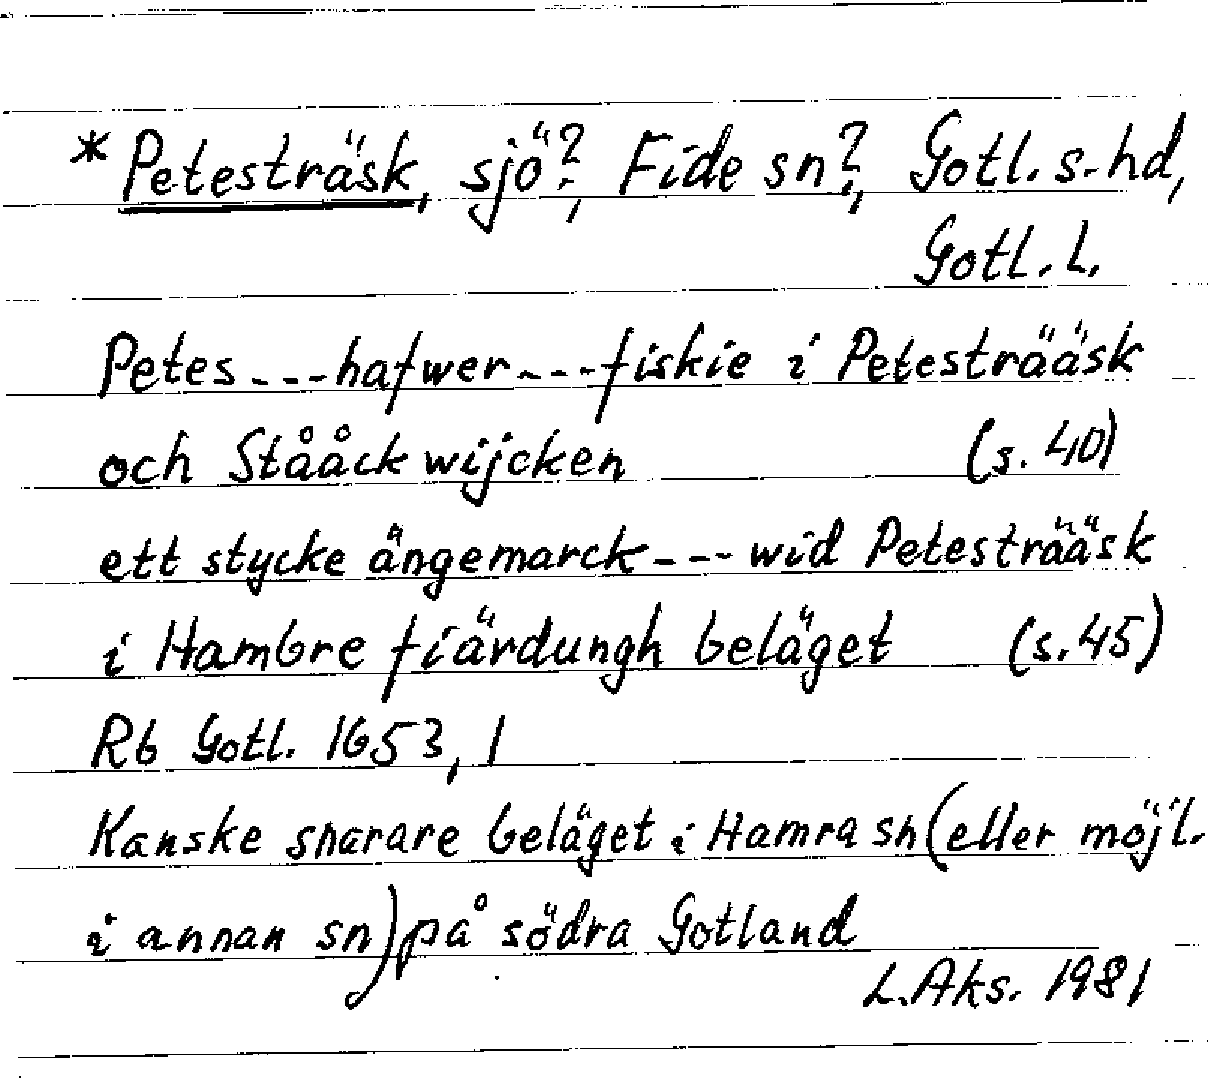 *Petesträsk, sjö?, Fide sn?, Gotl. s. hd,
Gotl. l.
Petes---hafwer---fiskie i Petesträäsk
och Stååckwijcken (s. 40)
ett stycke ängemarck---wid Petesträäsk
i Hambre fiärdungh beläget (s. 45)
Rb Gotl. 1653, 1
Kanske snarare beläget i Hamra sn (eller möjl.
i annan sn) på södra Gotland
L. Aks. 1981